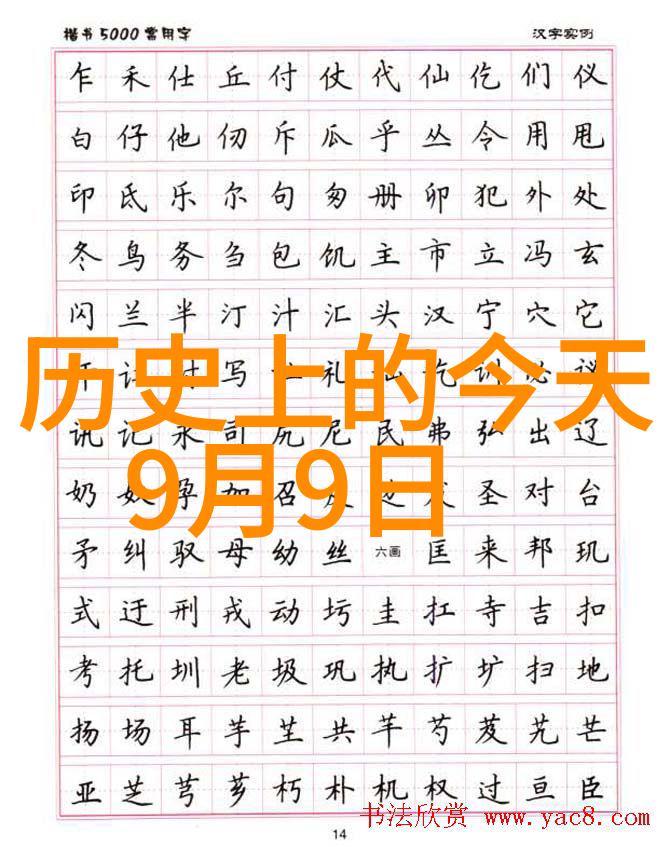 楷书5000常用字 汉字实例
乍 禾 仕 丘 付 仗 代 仙 仡 们 仪
白 仔 他 仞 斥 瓜 乎 丛 令 用 甩
印 氐 乐 尔 句 匆 册 卯 犯 外 处
冬 鸟 务 刍 包 饥 主 市 立 冯 玄
闪 兰 半 汀 汁 汇 头 汉 宁 穴 它
写 礼 必 议
历史上的今天
讯 记 永 司 尻 尼 民 弗 弘 出 辽
奶 孕 加 召 圣 对 台
9月9日
矛 纠 驭 母 幼 丝 六画 匡 来 邦 玑
式 迂 刑 戎 动 圬 圭 扛 寺 吉 扣
考 托 圳 老 圾 巩 执 扩 圹 扫 地
扬 场 耳 芋 芏 共 芊 芍 芨 艽 芒
亚 芝 芎 芗 朽 朴 机 权 过 亘 臣
书法欣赏 www.yac8.com
14